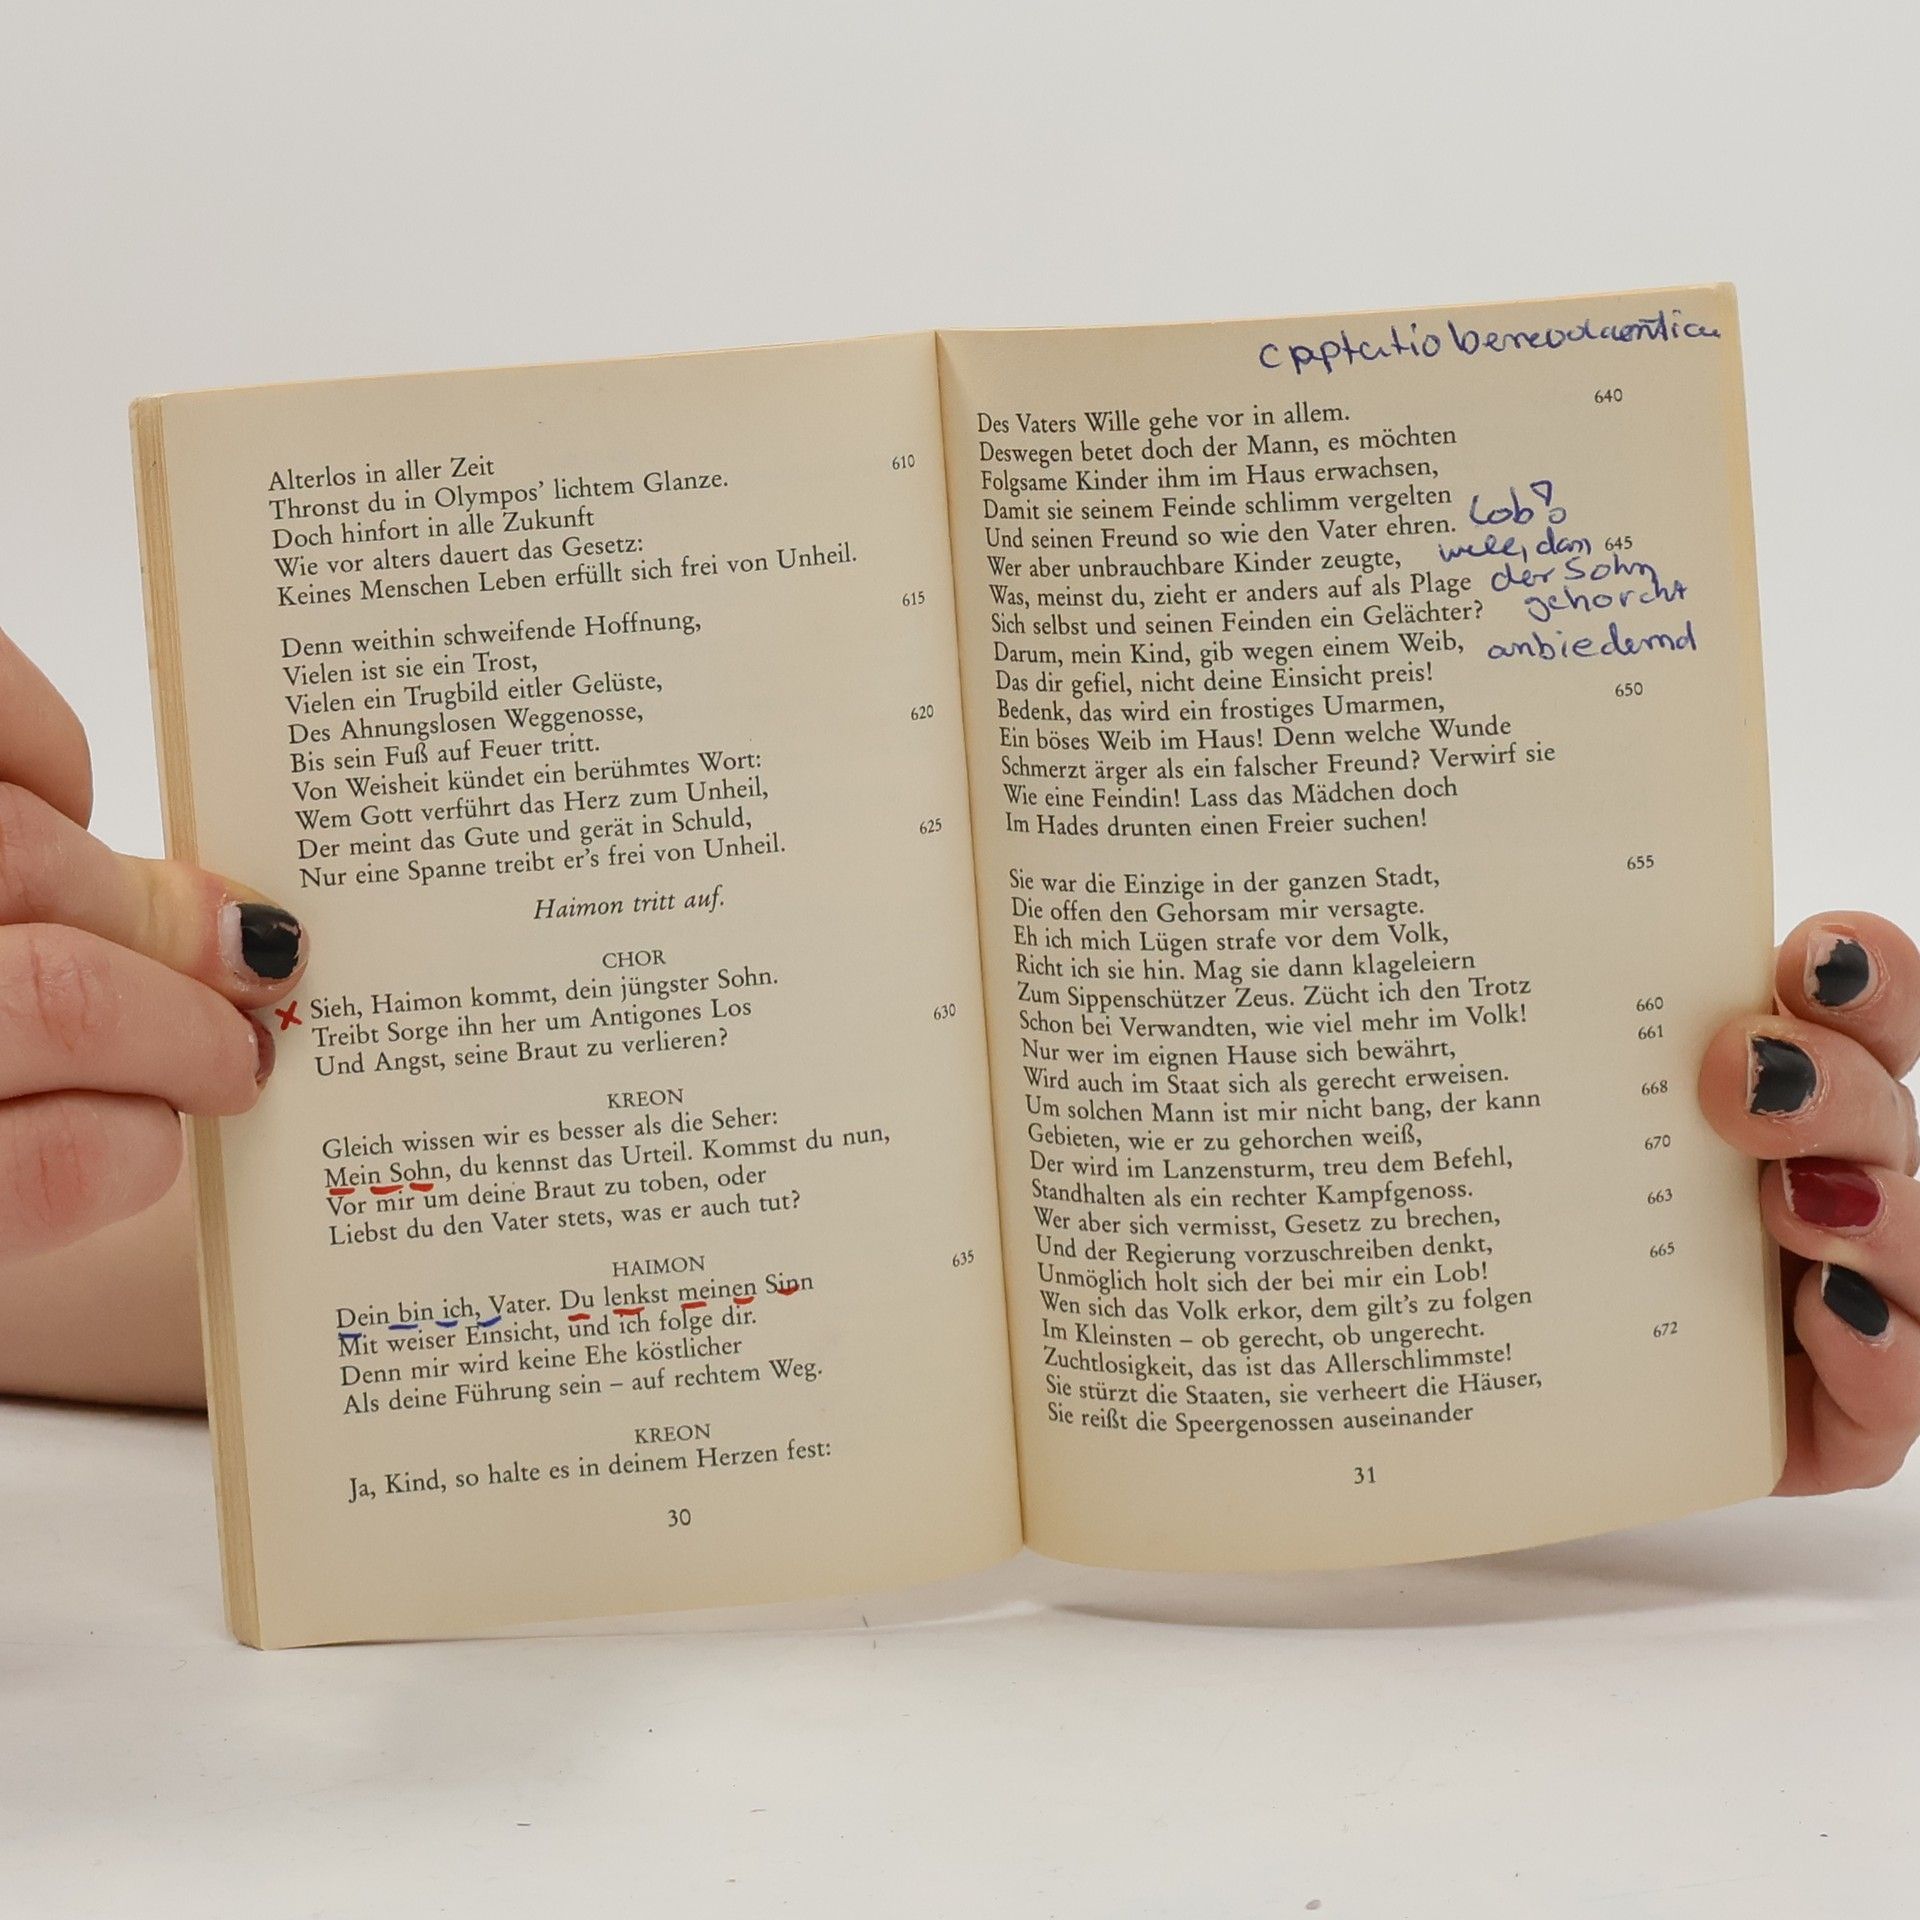 Alterlos in aller Zeit 610
Thronst du in Olympos’ lichtem Glanze.
Doch hinfort in alle Zukunft
Wie vor alters dauert das Gesetz:
Keines Menschen Leben erfüllt sich frei von Unheil.
Denn weithin schweifende Hoffnung, 615
Vielen ist sie ein Trost,
Vielen ein Trugbild eitler Gelüste,
Des Ahnungslosen Weggenosse,
Bis sein Fuß auf Feuer tritt. 620
Von Weisheit kündet ein berühmtes Wort:
Wem Gott verführt das Herz zum Unheil,
Der meint das Gute und gerät in Schuld,
Nur eine Spanne treibt er’s frei von Unheil. 625
Haimon tritt auf.
CHOR
Sieh, Haimon kommt, dein jüngster Sohn.
Treibt Sorge ihn her um Antigones Los
Und Angst, seine Braut zu verlieren? 630
KREON
Gleich wissen wir es besser als die Seher:
Mein Sohn, du kennst das Urteil. Kommst du nun,
Vor mir um deine Braut zu toben, oder
Liebst du den Vater stets, was er auch tut?
HAIMON
Dein bin ich, Vater. Du lenkst meinen Sinn 635
Mit weiser Einsicht, und ich folge dir.
Denn mir wird keine Ehe köstlicher
Als deine Führung sein – auf rechtem Weg.
KREON
Ja, Kind, so halte es in deinem Herzen fest:
30
captatio
Des Vaters Wille gehe vor in allem. 640
Deswegen betet doch der Mann, es möchten
Folgsame Kinder ihm im Haus erwachsen,
Damit sie seinem Feinde schlimm vergelten
Und seinen Freund so wie den Vater ehren. Lob!
Wer aber unbrauchbare Kinder zeugte, 645
Was, meinst du, zieht er anders auf als Plage der Sohn
Sich selbst und seinen Feinden ein Gelächter? gehorcht
Darum, mein Kind, gib wegen einem Weib, anbiedernd
Das dir gefiel, nicht deine Einsicht preis!
Bedenk, das wird ein frostiges Umarmen, 650
Ein böses Weib im Haus! Denn welche Wunde
Schmerzt ärger als ein falscher Freund? Verwirf sie
Wie eine Feindin! Lass das Mädchen doch
Im Hades drunten einen Freier suchen!
Sie war die Einzige in der ganzen Stadt, 655
Die offen den Gehorsam mir versagte.
Eh ich mich Lügen strafe vor dem Volk,
Richt ich sie hin. Mag sie dann klageleiern
Zum Sippenschützer Zeus. Zücht ich den Trotz
Schon bei Verwandten, wie viel mehr im Volk! 660
Nur wer im eignen Hause sich bewährt, 661
Wird auch im Staat sich als gerecht erweisen.
Um solchen Mann ist mir nicht bang, der kann 668
Gebieten, wie er zu gehorchen weiß,
Der wird im Lanzensturm, treu dem Befehl, 670
Standhalten als ein rechter Kampfgenoss.
Wer aber sich vermisst, Gesetz zu brechen, 663
Und der Regierung vorzuschreiben denkt,
Unmöglich holt sich der bei mir ein Lob! 665
Wen sich das Volk erkor, dem gilt’s zu folgen
Im Kleinsten – ob gerecht, ob ungerecht.
Zuchtlosigkeit, das ist das Allerschlimmste! 672
Sie stürzt die Staaten, sie verheert die Häuser,
Sie reißt die Speergenossen auseinander
31